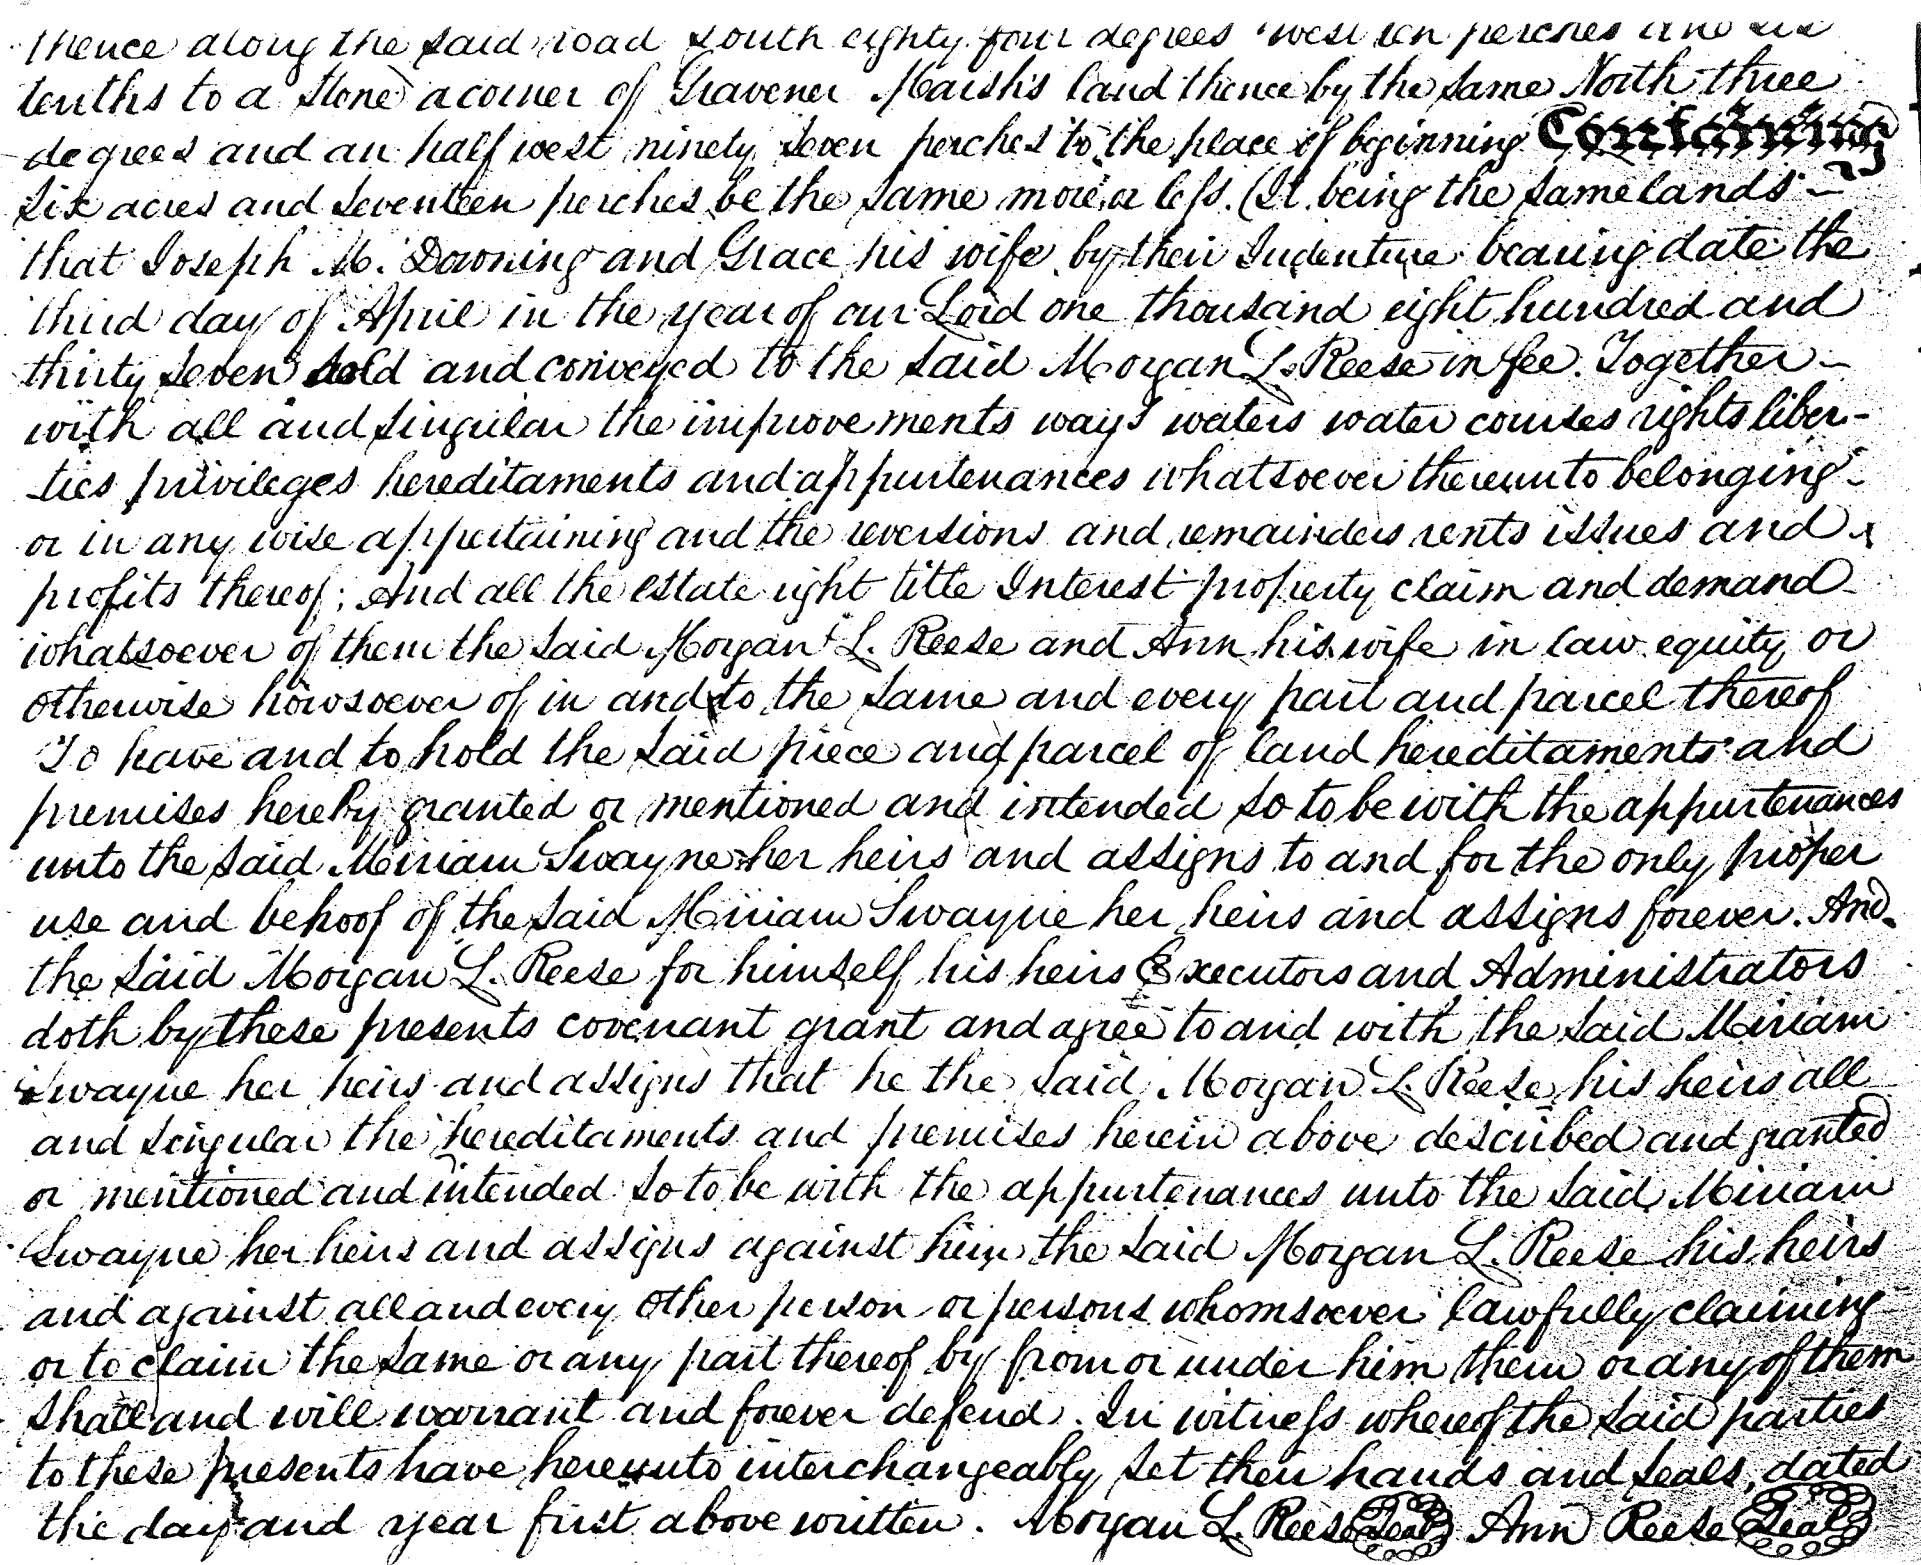 thence along the said road South eighty four degrees West ten perches and six
tenths to a Stone a corner of Gravener Marsh's land thence by the same North three
degrees and an half west ninety seven perches to the place of beginning Containing
six acres and seventeen perches be the same more or less. (It being the same lands
that Joseph M. Downing and Grace his wife by their Indenture bearing date the
third day of April in the year of our Lord one thousand eight hundred and
thirty seven sold and conveyed to the said Morgan L. Reese in fee. Together
with all and singular the improvements ways waters water courses rights liber-
ties privileges hereditaments and appurtenances whatsoever thereunto belonging
or in any wise appertaining and the reversions and remainders rents issues and
profits thereof; And all the estate right title Interest property claim and demand
whatsoever of them the said Morgan L. Reese and Ann his wife in law equity or
otherwise howsoever of in and to the same and every part and parcel thereof
To have and to hold the said piece and parcel of land hereditaments and
premises hereby granted or mentioned and intended so to be with the appurtenances
unto the said Miriam Swayne her heirs and assigns to and for the only proper
use and behoof of the said Miriam Swayne her heirs and assigns forever. And
the said Morgan L. Reese for himself his heirs Executors and Administrators
doth by these presents covenant grant and agree to and with the said Miriam
Swayne her heirs and assigns that he the said Morgan L. Reese his heirs all
and singular the hereditaments and premises herein above described and granted
or mentioned and intended so to be with the appurtenances unto the said Miriam
Swayne her heirs and assigns against him the said Morgan L. Reese his heirs
and against all and every other person or persons whomsoever lawfully claiming
or to claim the same or any part thereof by from or under him them or any of them
shall and will warrant and forever defend. In witness whereof the said parties
to these presents have hereunto interchangeably set their hands and seals, dated
the day and year first above written. Morgan L. Reese Seal Ann Reese Seal